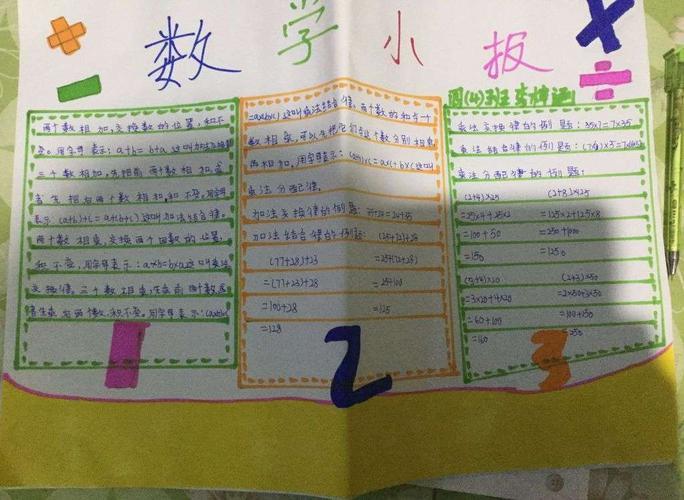 数学小报
四(4)班
两个数相加,交换数的位置,和不
变。用字母表示:a+b=b+a 这叫加法交换律
三个数相加,先把前两个数相加,或
者先把后两个数相加,和不变。用字母
表示(a+b)+c=a+(b+c)这叫加法结合律。
两个数相乘,交换两个因数的位置,
积不变,用字母表示:a×b=b×a这叫乘法
交换律。三个数相乘,先乘前两个数,
或先乘后两个数,积不变。用字母表示:(a×b)×c
=a×(b×c)这叫乘法结合律。两个数的和与一个
数相乘,可以先把它们与这个数分别相乘
再相加,用字母表示:(a+b)×c=a×c+b×c这叫
乘法分配律。
加法交换律的例题:
加法结合律的例题:
(77+28)+23
=(77+23)+28
=100+28
=128
=25+(72+28)
=25+100
=125
乘法交换律的例题:35×7=7×35
乘法结合律的例题:
乘法分配律的例题:
(2+4)×25
=25×4+25×2
=100+50
=150
(2+8)×125
=125×2+125×8
=250+1000
=1250
=3×20+4×20
=60+100
=160
(2+3)×50
=2×50+3×50
=100+150
=250
1
2
3